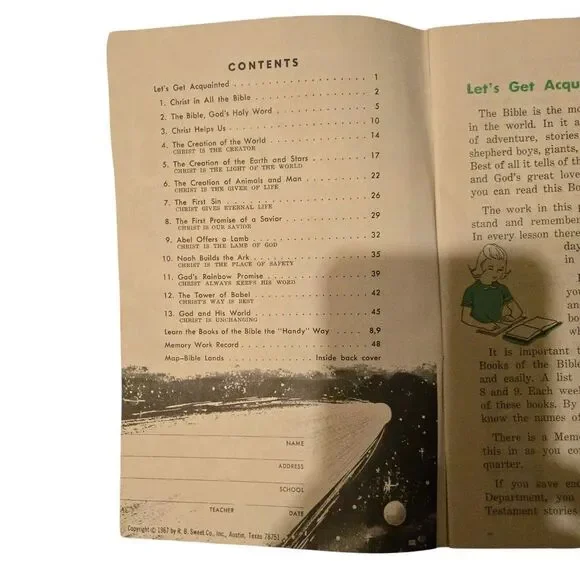 CONTENTS
Let's Get Acquainted . . . . . . . . . . . . . . . . 1
1. Christ in All the Bible . . . . . . . . . . . . . . . . 2
2. The Bible, God's Holy Word . . . . . . . . . . . . . 5
3. Christ Helps Us . . . . . . . . . . . . . . . . 10
4. The Creation of the World . . . . . . . . . . . . . 14
CHRIST IS THE CREATOR
5. The Creation of the Earth and Stars . . . . . . . . . 17
CHRIST IS THE LIGHT OF THE WORLD
6. The Creation of Animals and Man . . . . . . . . . . 22
CHRIST IS THE GIVER OF LIFE
7. The First Sin . . . . . . . . . . . . . . . . 26
CHRIST GIVES ETERNAL LIFE
8. The First Promise of a Savior . . . . . . . . . . . 29
CHRIST IS OUR SAVIOR
9. Abel Offers a Lamb . . . . . . . . . . . . . . . 32
CHRIST IS THE LAMB OF GOD
10. Noah Builds the Ark . . . . . . . . . . . . . . . 35
CHRIST IS THE PLACE OF SAFETY
11. God's Rainbow Promise . . . . . . . . . . . . . 39
CHRIST ALWAYS KEEPS HIS WORD
12. The Tower of Babel . . . . . . . . . . . . . . . 42
CHRIST'S WAY IS BEST
13. God and His World . . . . . . . . . . . . . . . 45
CHRIST IS UNCHANGING
Learn the Books of the Bible the "Handy" Way . . . . 8,9
Memory Work Record . . . . . . . . . . . . . . . . 48
Map—Bible Lands . . . . . . . . . . Inside back cover
NAME
ADDRESS
SCHOOL
TEACHER DATE
Copyright © 1967 by R. B. Sweet Co., Inc., Austin, Texas 78751
Let's Get Acqu
The Bible is the mo
in the world. In it a
of adventure, stories
shepherd boys, giants,
Best of all it tells of th
and God's great love
you can read this Bo
The work in this p
stand and remember
In every lesson there
day
in
you
and
bo
wh
It is important t
Books of the Bible
and easily. A list
8 and 9. Each week
of these books. By
know the names of
There is a Mem
this in as you con
quarter.
If you save ea
Department, you
Testament stories